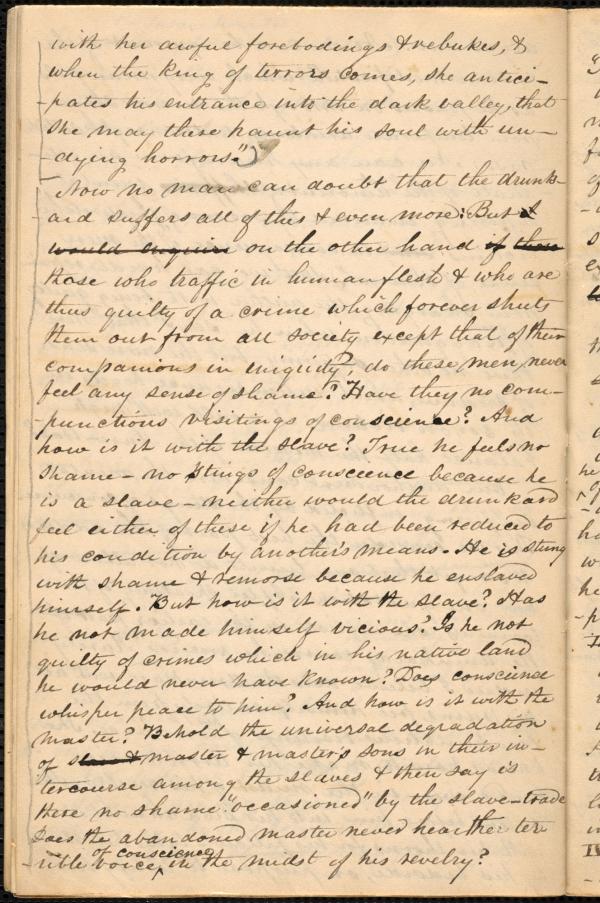 with her awful forebodings & rebukes, &
when the king of terrors comes, she antici-
-pates his entrance into the dark valley, that
she may there haunt his soul with un-
-dying horrors.")
Now no man can doubt that the drunk-
-ard suffers all of this & even more: But I
would enquire on the other hand if then
those who traffic in human flesh & who are
thus guilty of a crime which forever shuts
them out from all society except that of their
companions in eniquity, do these men never
feel any sense of shame? Have they no com-
-punctious visitings of conscience? And
how is it with the slave? True he feels no
shame - no stings of conscience because he
is a slave - neither would the drunkard
feel either of these if he had been reduced to
his condition by another's means. He is stung
with shame & remorse because he enslaved
himself. But how is it with the slave? Has
he not made himself vicious? Is he not
guilty of crimes which in his native land
he would never have known? Does conscience
whisper peace to him? And how is it with the
master? Behold the universal degradation
of master & master's sons in their in-
tercourse among the slaves & then say is
there no shame "occasioned" by the slave-trade
Does the abandoned master never hear her ter
-rible voice, of conscience in the midst of his revelry?